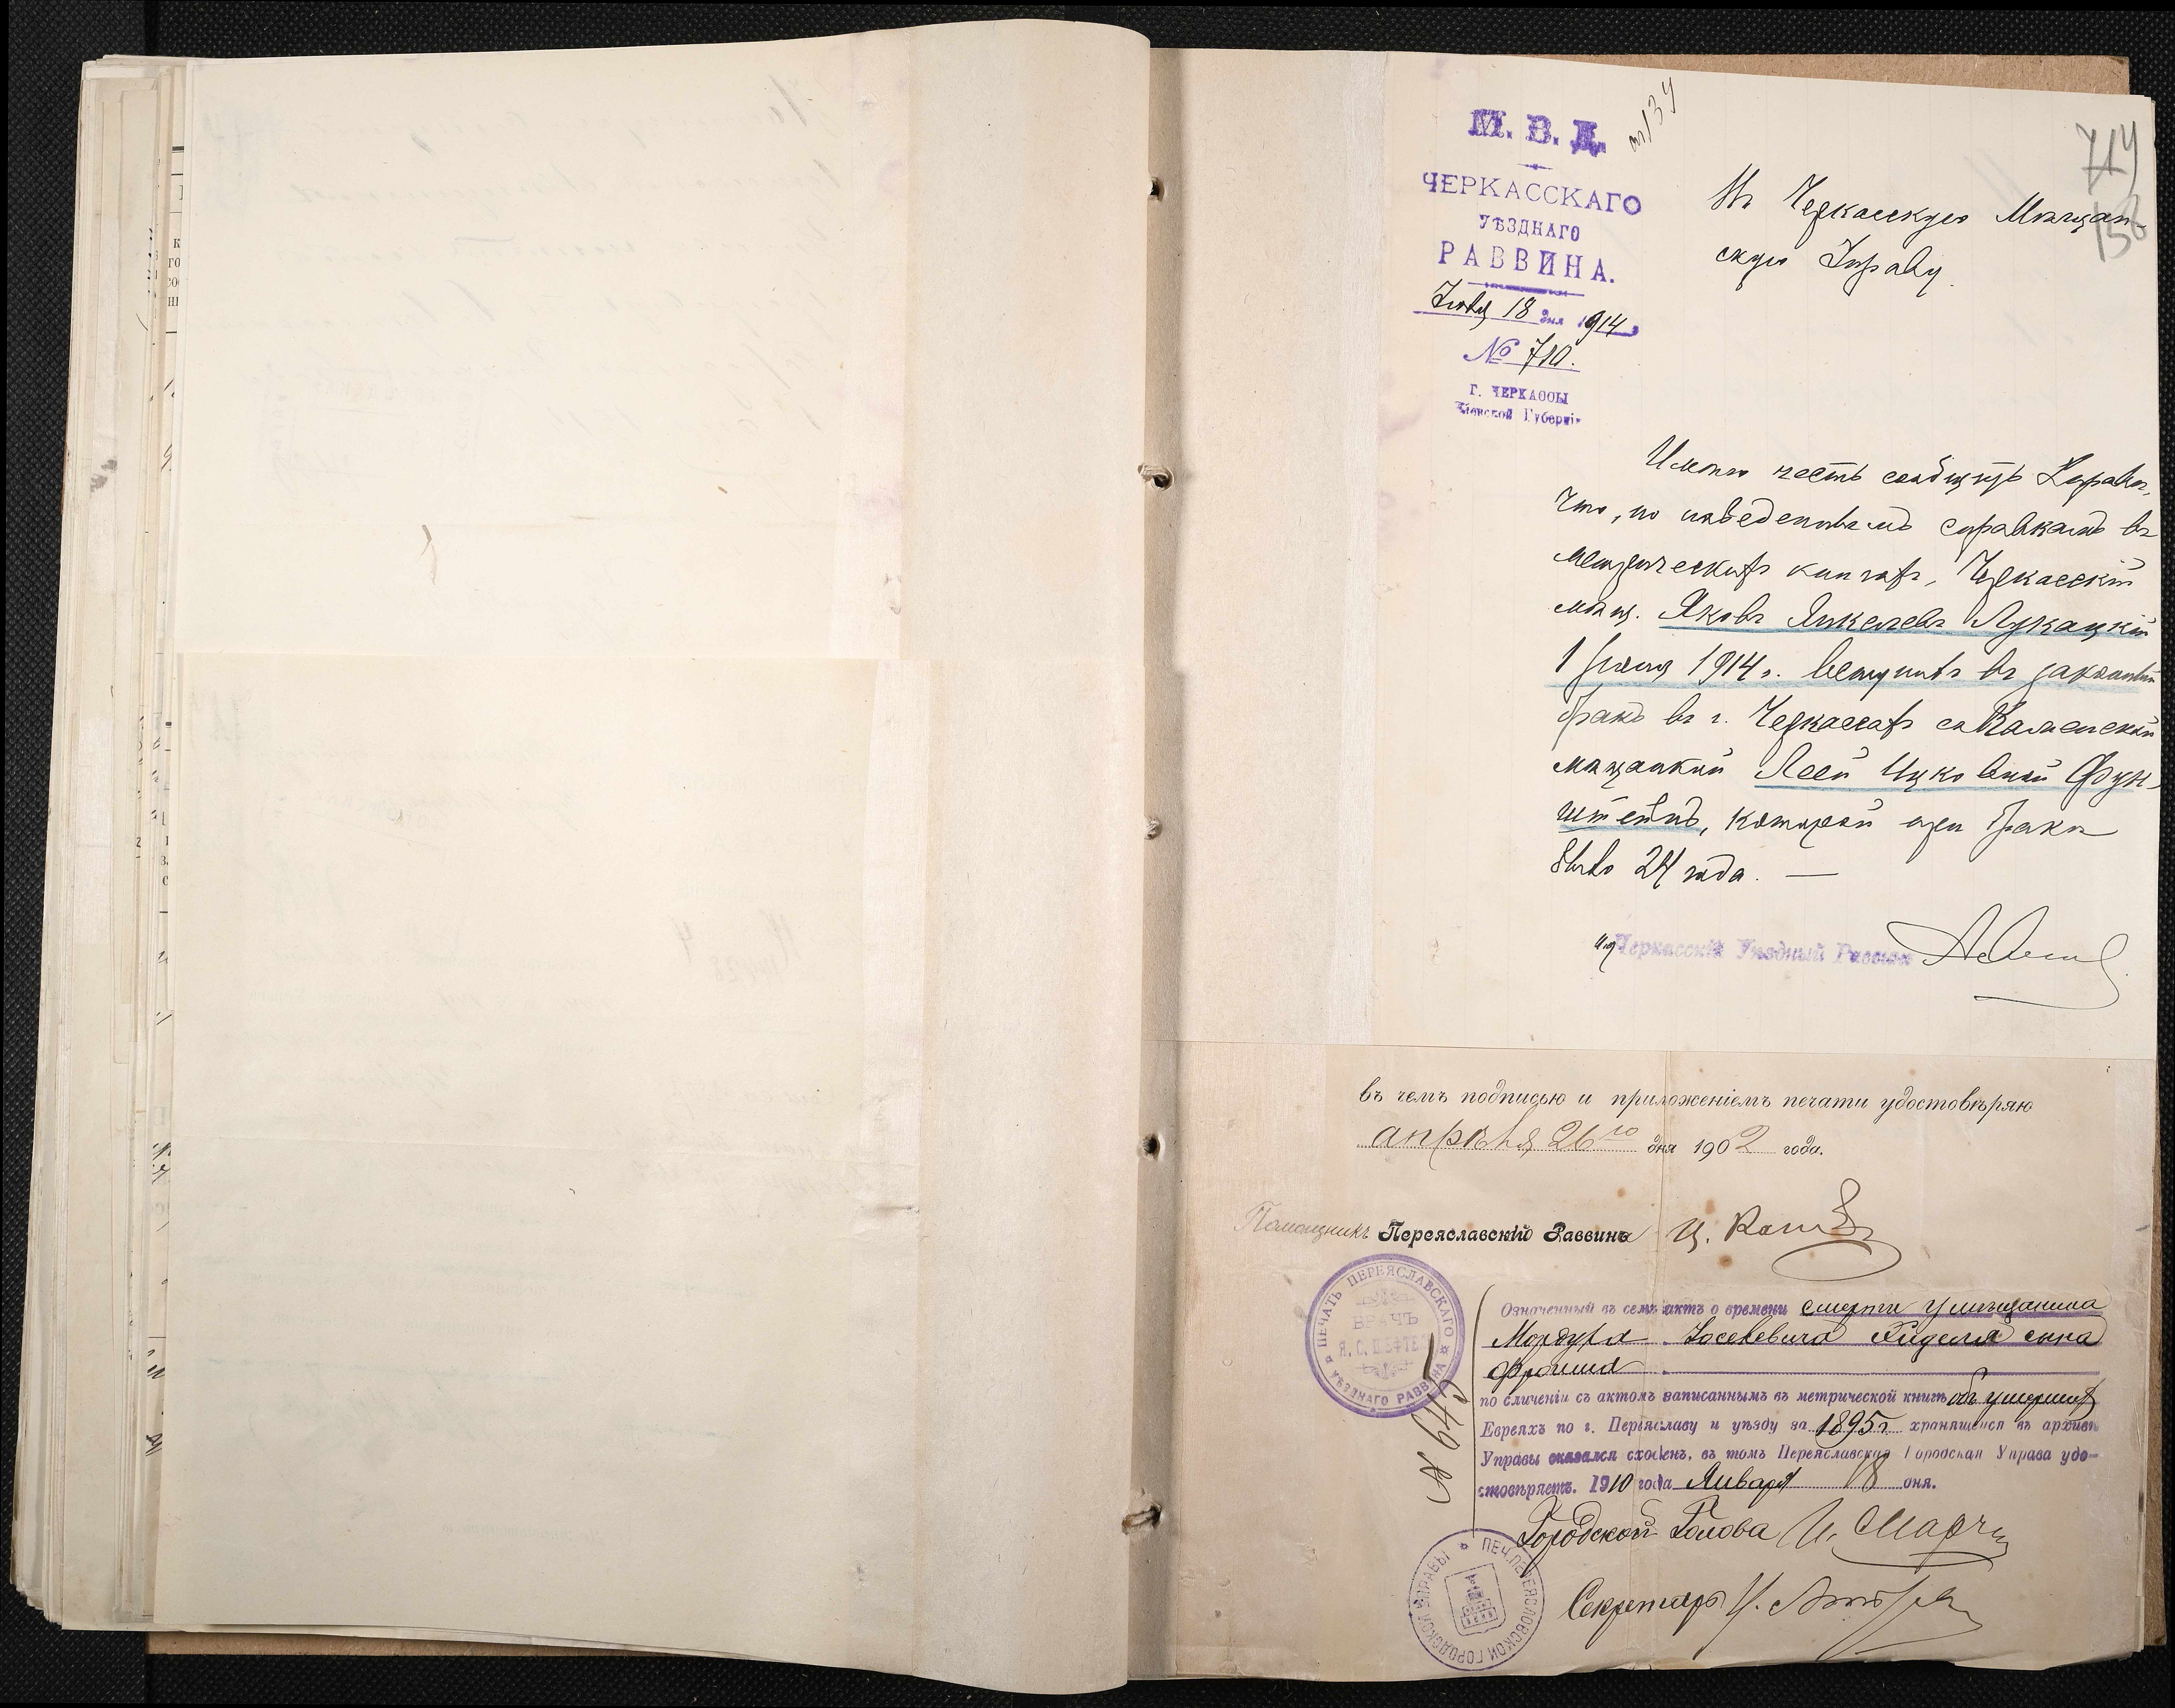 714
156
М. В. Д.
ЧЕРКАССКАГО
УѢЗДНАГО
РАВВИНА.
Іюля 18 дня 1914 г
№ 710.
Г. ЧЕРКАССЫ
Кіевской Губерніи
Въ Черкасскую Мѣщан-
скую Управу.
Имѣю честь сообщить Управѣ,
что, по наведеннымъ справкамъ въ
метрическихъ книгахъ, Черкасскій
мѣщ. Яковъ Янкелевъ Лукацкій
1 1914 г. вступилъ въ законный
бракъ въ г. Черкассахъ съ Каменской
мѣщанкой Леей Ицковной Фун-
штейнъ, которой при бракѣ
было 24 года. —
Черкасскій Уѣздный Раввинъ
въ чемъ подписью и приложеніемъ печати удостовѣряю
апрѣля 26го дня 1902 года.
Помощникъ Переяславскій Раввина Ц.
ПЕЧАТЬ ПЕРЕЯСЛАВСКАГО УѢЗДНАГО РАВВИНА
ВРАЧЪ
Означенный въ семъ актѣ о времени смерти у мѣщанина
Мордуха Іоселевича сына
Фроима
по сличеніи съ актомъ записаннымъ въ метрической книгѣ объ умершихъ
Евреяхъ по г. Переяславу и уѣзду за 1895 г. хранящейся въ архивѣ
Управы оказался сходенъ, въ томъ Переяславская Городская Управа удо-
стовѣряетъ. 1910 года Января 18 дня.
№ 645
Городской Голова И.
Секретарь
ПЕЧ. ПЕРЕЯСЛОВСКОЙ ГОРОДСКОЙ УПРАВЫ